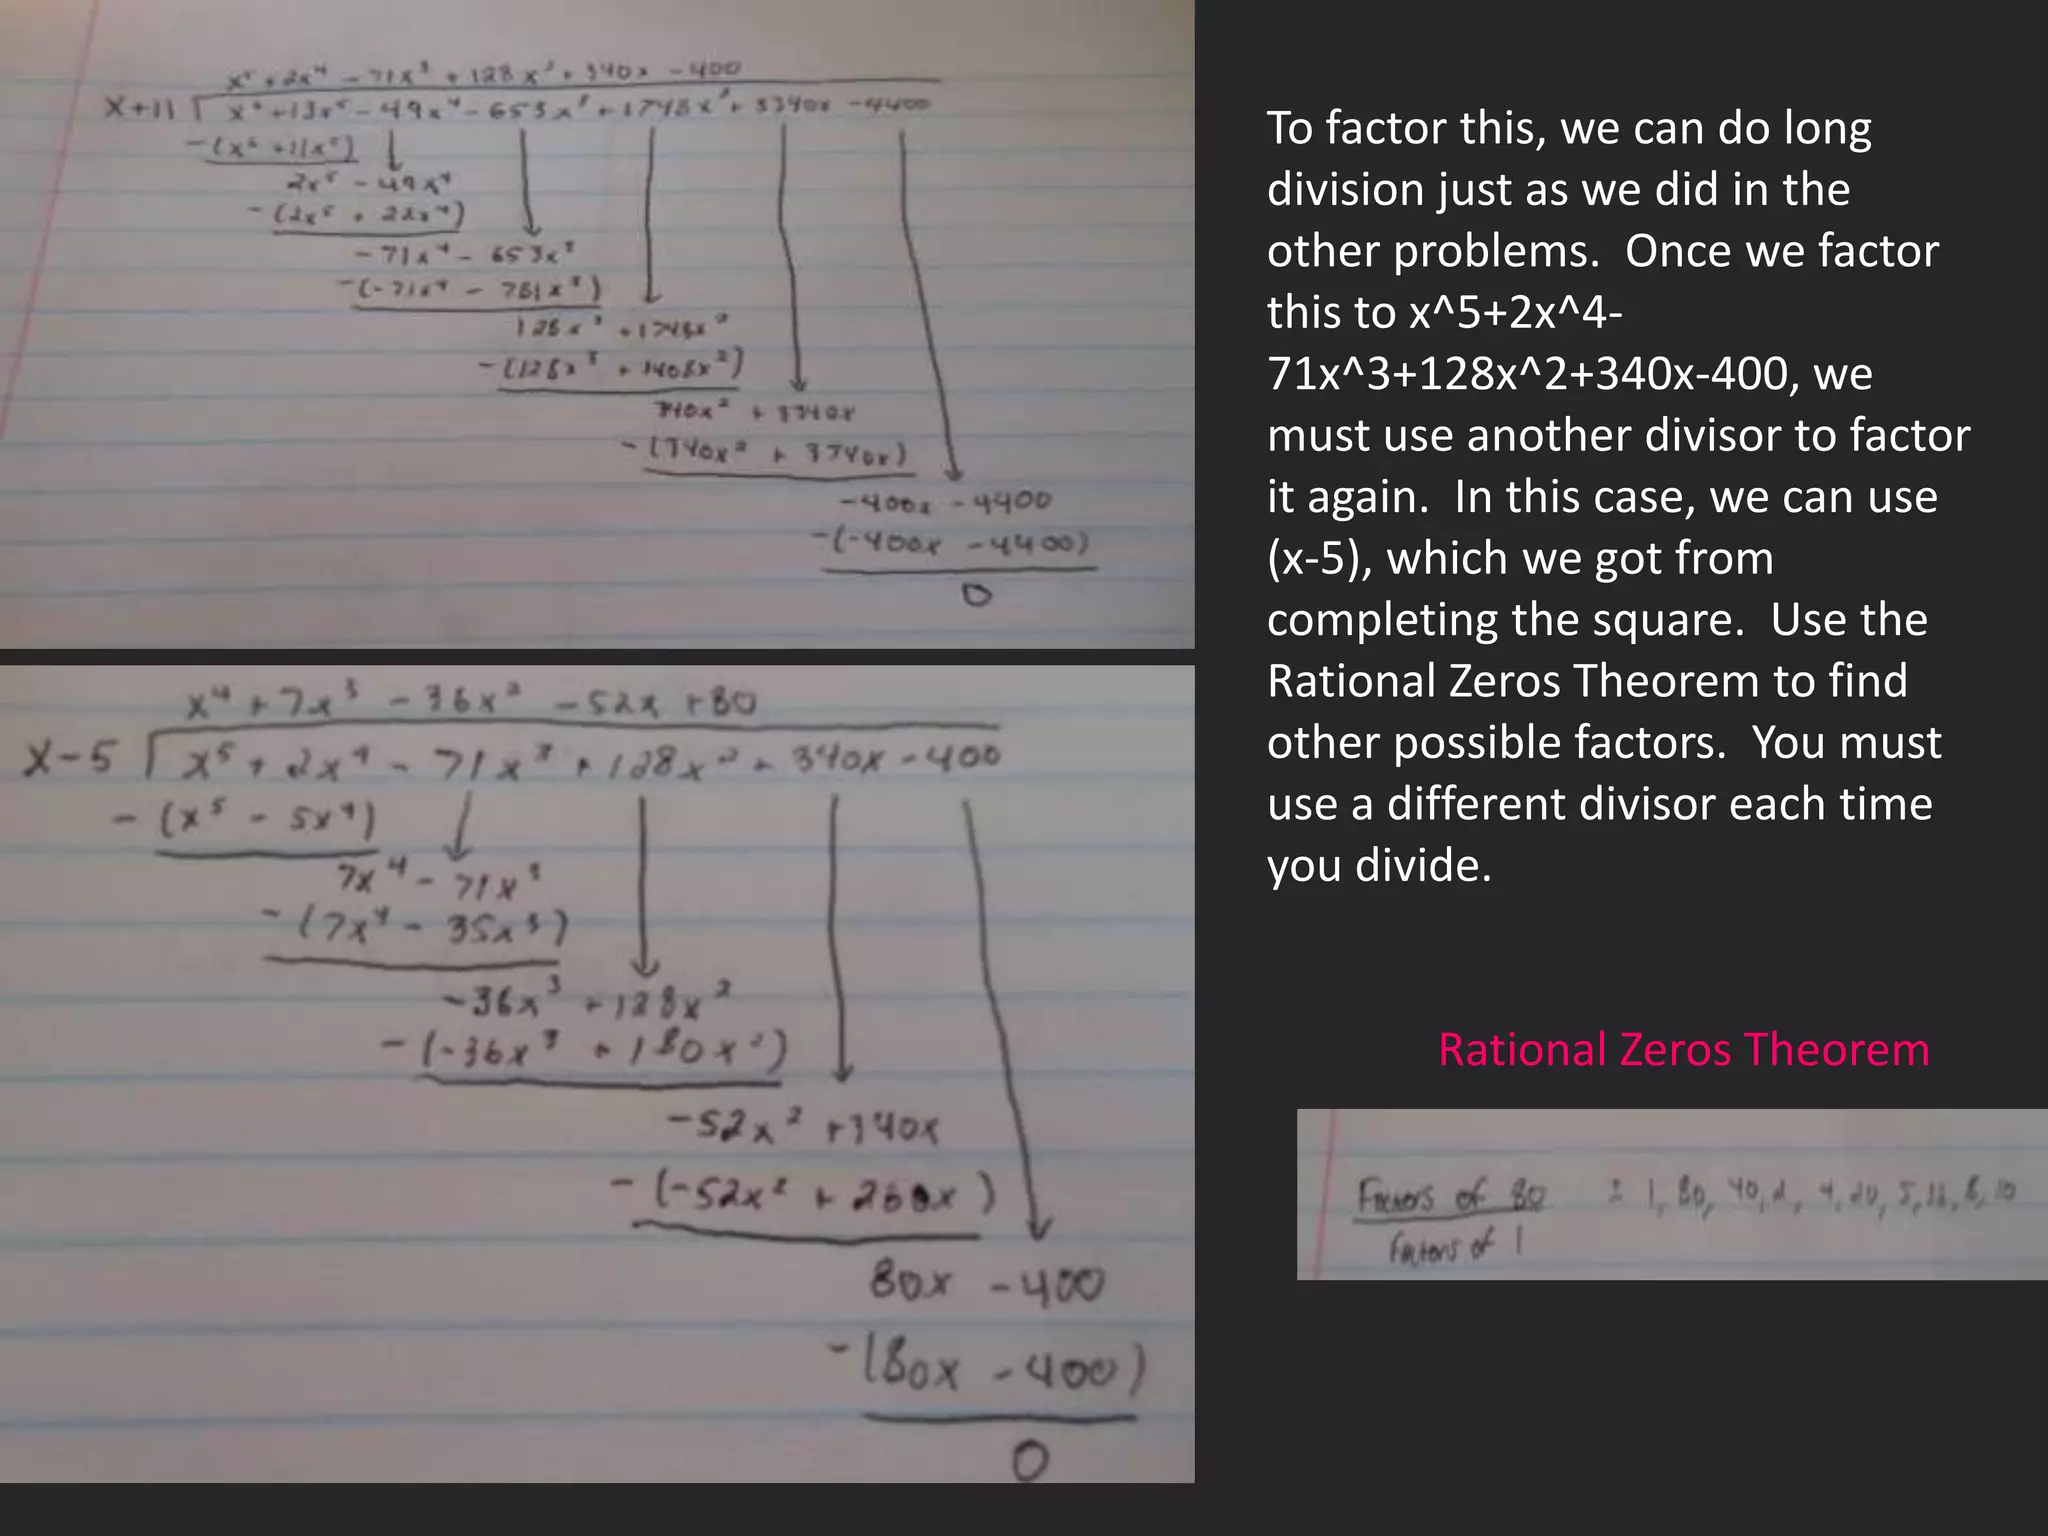 x⁵ + 2x⁴ - 71x³ + 128x² + 340x - 400
x+11 x⁶ + 13x⁵ - 49x⁴ - 653x³ + 1748x² + 3340x - 4400
-(x⁶ + 11x⁵)
2x⁵ - 49x⁴
-(2x⁵ + 22x⁴)
-71x⁴ - 653x³
-(-71x⁴ - 781x³)
128x³ + 1748x²
-(128x³ + 1408x²)
340x² + 3340x
-(340x² + 3740x)
-400x - 4400
-(-400x - 4400)
0
x⁴ + 7x³ - 36x² - 52x + 80
x-5 x⁵ + 2x⁴ - 71x³ + 128x² + 340x - 400
-(x⁵ - 5x⁴)
7x⁴ - 71x³
-(7x⁴ - 35x³)
-36x³ + 128x²
-(-36x³ + 180x²)
-52x² + 340x
-(-52x² + 260x)
80x - 400
-(80x - 400)
0
To factor this, we can do long
division just as we did in the
other problems. Once we factor
this to x^5+2x^4-
71x^3+128x^2+340x-400, we
must use another divisor to factor
it again. In this case, we can use
(x-5), which we got from
completing the square. Use the
Rational Zeros Theorem to find
other possible factors. You must
use a different divisor each time
you divide.
Rational Zeros Theorem
Factors of 80 ± 1, 80, 40, 2, 4, 20, 5, 16, 8, 10
Factors of 1